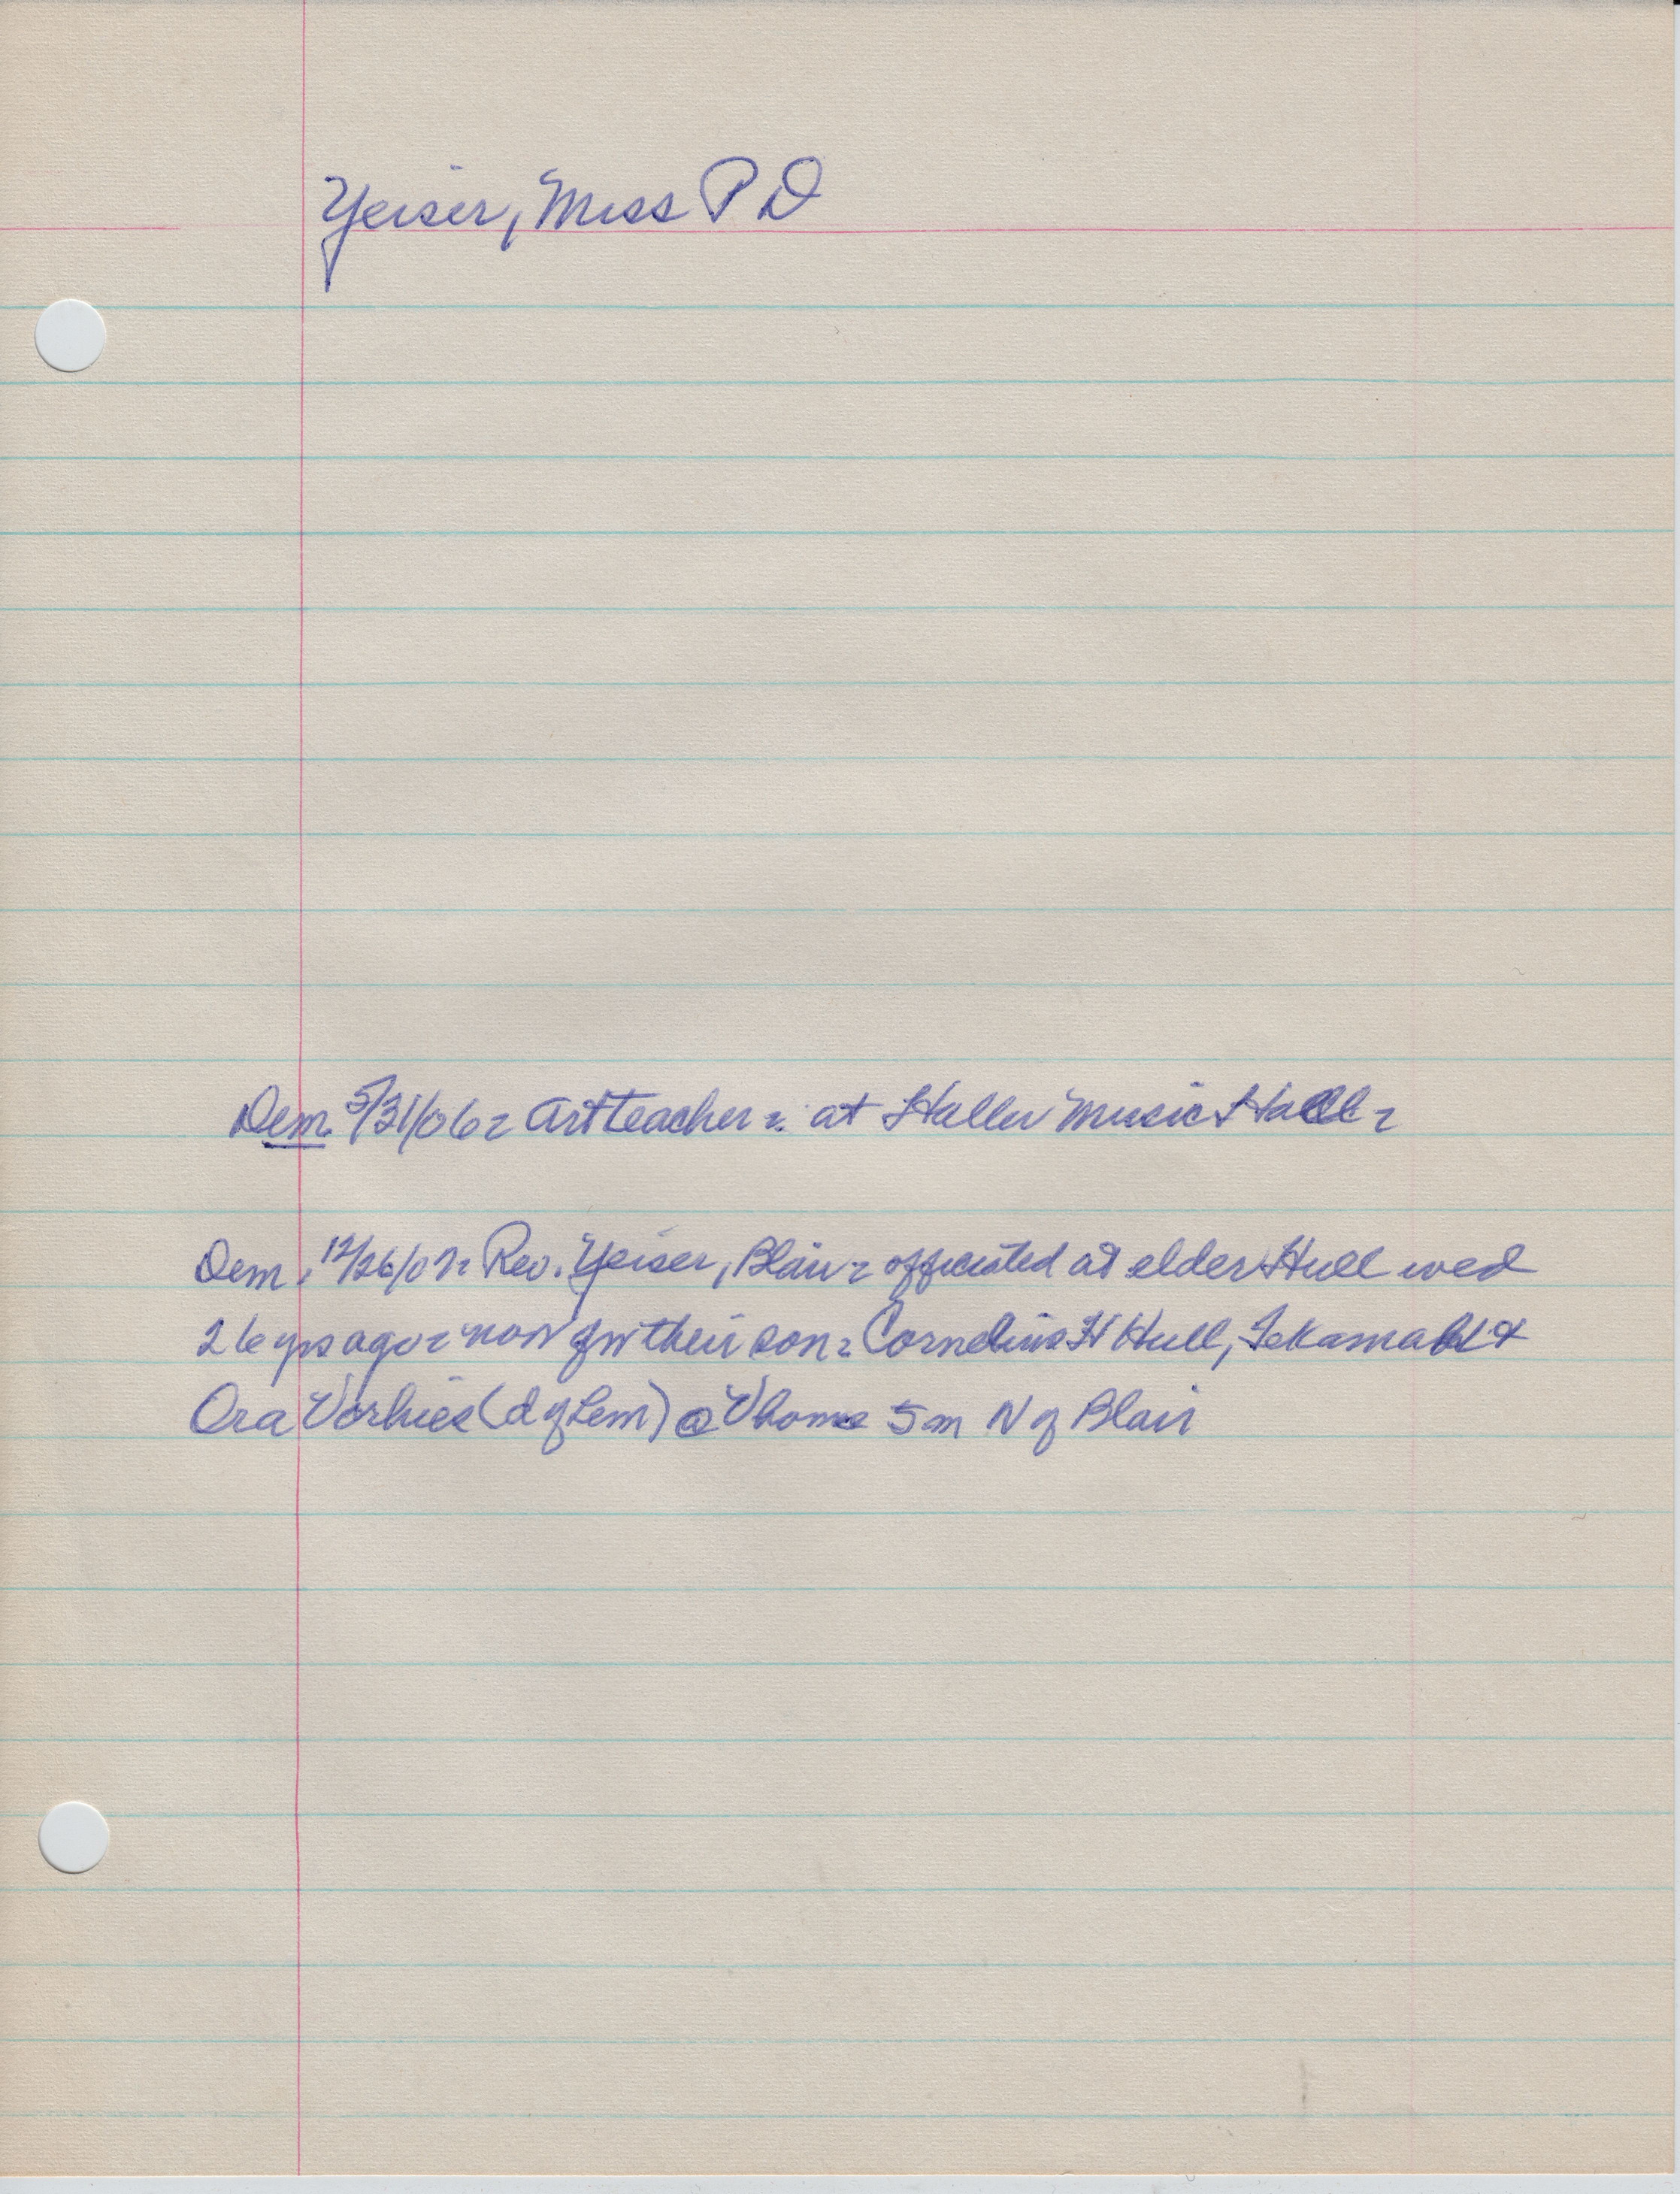 Yeiser, Miss P D
Dem. 5/31/06 - Art teacher - at Haller Music Hall -
Dem. 12/26/07 - Rev. Yeiser, Blair - officiated at elder Hull wed
26 yrs ago - now for their son - Cornelius H Hull, Tekamah &
Ora Vorhies (d of Lem) @ V home 5 m N of Blair